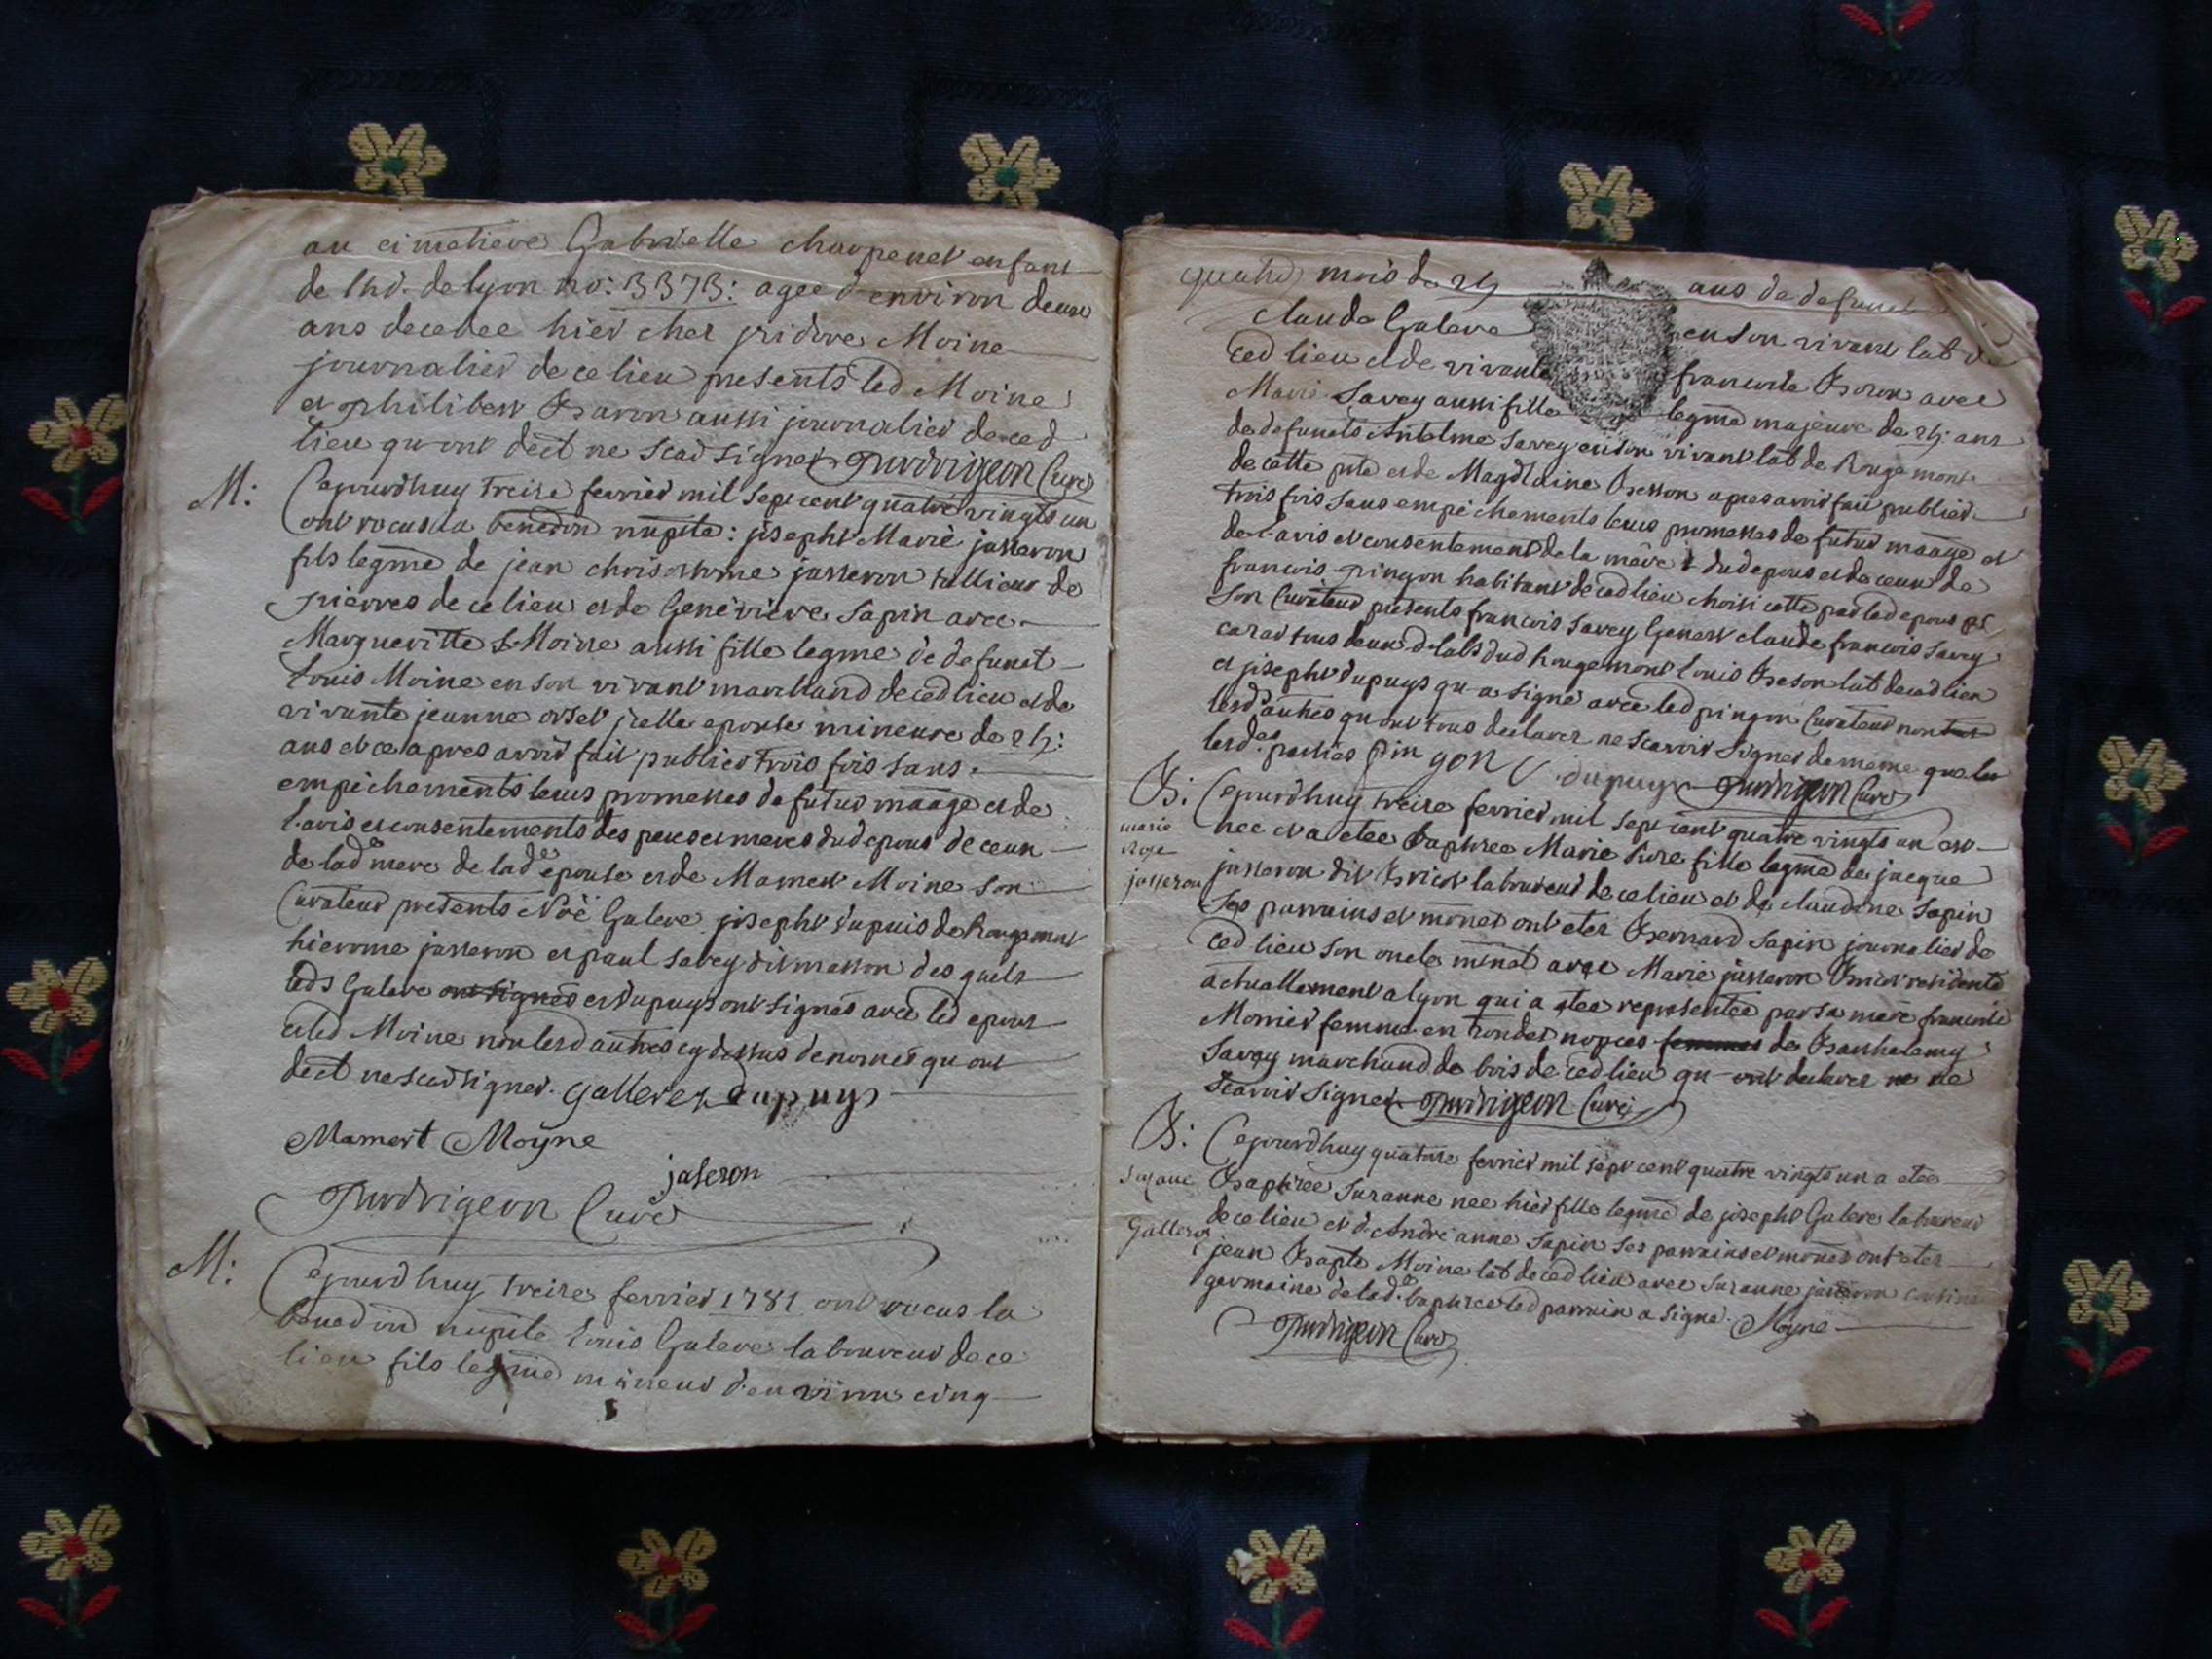 au cimetiere Gabrielle charpenet enfant
de lhd. de lyon no: 3373: agee d'environ deux
ans decedee hier chez jsidore Moine
journalier de ce lieu presents led Moine
et philibert Baron aussi journalier de ced
lieu qu-ont dect ne scad signer Curé
M: Cejourdhuy treize fevrier mil sept cent quatre vingts un
ont recus la benedon nuptle: josepht Marie jasseron
fils legme de jean chrisostome jasseron tallieur de
pierres de ce lieu et de Genevieve Sapin avec
Margueritte Moine aussi fille legme de defunct
Louis Moine en son vivant marchand de ced lieu et de
vivante jeanne orset jcelle epouse mineure de 24:
ans et ce apres avoir fait publier trois fois sans
empechements leurs promesses de futur maage et de
l'avis et consentements des peres et meres dud epoux de ceux
de lade mere de lade epouse et de Mamert Moine son
Curateur presents Noë Galere josepht dupuis de Rougemont
hierome jasseron et paul Savey dit masson des quels
leds Galere ont signés et dupuys ont signés avec led epoux
et led Moine non lesd autres cy dessus denomés qu ont
dect ne scad signer. Gallere dupuys
Mamert Moyne
jaseron
Curé
M: Cejourdhuy treize fevrier 1781 ont recus la
benedon nuptle Louis Galere laboureur de ce
lieu fils legme mineur d'environ cinq
quatre mois de 24 ans de defunct
Claude Galere en son vivant lab de
ced lieu et de vivante francoise Boron avec
Marie Savey aussi fille legme majeure de 24: ans
de defuncts Antelme Savey en son vivant lab de Rougemont
de cette pss et de Magdlaine Besson apres avoir fait publier
trois fois sans empechements leurs promesses de futur maage et
de l'avis et consentement de la mere dud epoux et de ceux de
francois pingon habitant de ced lieu choisi cette par led epoux ps
son Curateur presents francois Savey Genest claude francois Savey
carar tous deux labs dud Rougemont Louis Beson lab de ced lieu
et josepht dupuys qu-a signé avec led pingon Curateur non
lesd autres qu ont tous declarer ne scavoir signer de meme que les
lesdes parties pin gon dupuys Curé
B: Cejourdhuy treize fevrier mil sept cent quatre vingts un est
marie nee et a etee baptizee Marie Rose fille legme de jacque
Roze
jasseron jasseron dit Bricot laboureur de ce lieu et de claudine Sapin
Ses parrains et mones ont etez Bernard Sapin journalier de
ced lieu son oncle avec Marie jasseron residente
actuallement a lyon qui a etee representée par sa mere francoise
Monier femme en nopces femmes de Barthelemy
Savey marchand de bois de ced lieu qu-ont declarer ne
scavoir signer Curé
B: Cejourdhuy quatorze fevrier mil sept cent quatre vingts un a etee
Suzane Baptizee Suzanne nee hier fille legme de josepht Galere laboureur
de ce lieu et d'Andre anne Sapin ses parrains et mones ont etez
Gallere jean Bapte Moine lab de ced lieu avec Suzanne jasseron cousine
germaine de lade baptizee led parrain a signé. Moyne
Curé